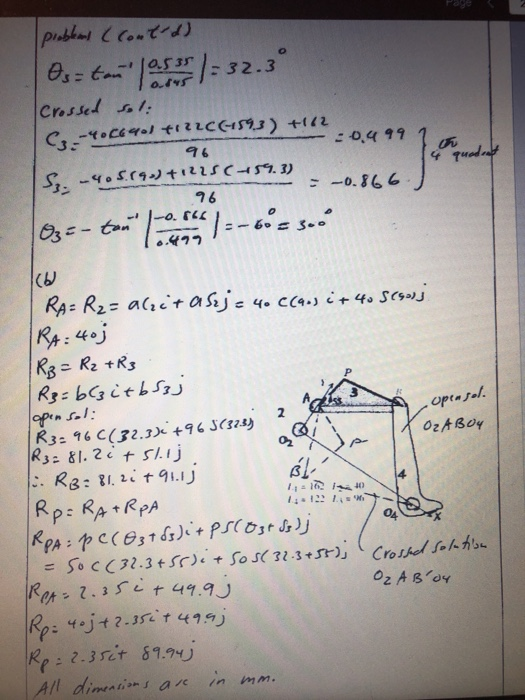 Page
problem (cont'd)
θ3 = tan⁻¹ |0.535 / 0.845| = 32.3°
Crossed sol:
C3 = (-40 C(90) + 122 C(-159.3) + 162) / 96 = 0.499
S3 = (-40 S(90) + 122 S(-159.3)) / 96 = -0.866
4th quadrant
θ3 = - tan⁻¹ |-0.866 / 0.499| = -60° = 300°
(b)
RA = R2 = aC2i + aS2j = 40 C(90) i + 40 S(90) j
RA = 40j
RB = R2 + R3
R3 = bC3i + bS3j
open sol:
R3 = 96 C(32.3)i + 96 S(32.3)
R3 = 81.2i + 51.1j
∴ RB = 81.2i + 91.1j
Rp = RA + RpA
RpA = p C(θ3+δ3)i + p S(θ3+δ3)j
= 50 C(32.3+55)i + 50 S(32.3+55)j
RpA = 2.35i + 49.9j
Rp = 40j + 2.35i + 49.9j
Rp = 2.35i + 89.94j
All dimensions are in mm.
P
A
3
B
2
O2
P
B'
4
O4
X
L1 = 162 L2 = 40
L4 = 122 L3 = 96
open sol.
O2ABO4
Crossed solution
O2AB'O4